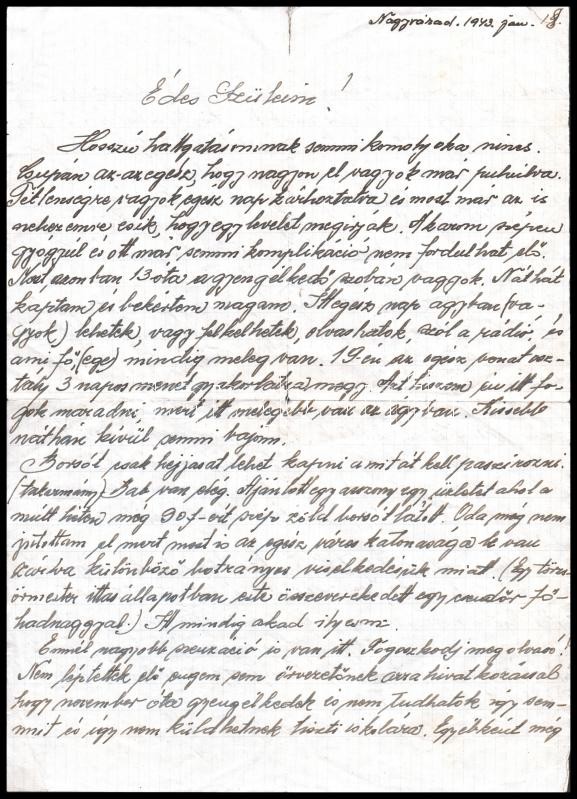 Nagyvárad. 1943. jan. 18.
Édes Szüleim!
Hosszú hallgatásomnak semmi komoly oka nincs.
Csupán az-az egész, hogy nagyon el vagyok már puhulva.
Tétlenségre vagyok egész nap kárhoztatva és most már az is
nehezemre esik, hogy egy levelet megirják. A karom szépen
gyógyúl és ott már semmi komplikáció nem fordulhat elő.
Most azonban 13-óta a gyengélkedő szobán vagyok. Náthát
kaptam és bekértem magam. Itt egész nap agyban (va-
gyok) lehetek, vagy felkelhetek, olvashatok, szól a radió, és
ami fő, (ege) mindig meleg van. 19-en az egész vonat osz-
tály 3 napos menetgyakorlatra megy. Azt hiszem én itt fo-
gok maradni, mert itt melegebb van az agyban. Kissebb
náthán kívül semmi bajom.
Borsót csak héjjasat lehet kapni amit át kell passzirozni.
(takarmány) Bab van elég. Ajánlott egy asszony egy üzletet ahol a
mult héten még 90 f-ért szép zöld borsót látott. Oda még nem
jutottam el mert most is az egész város katonasága be van
zárva különböző botrányos viselkedésük miatt. (Egy törzs-
örmester ittas állapotban este összeverekedett egy csendőr fő-
hadnaggyal.) Itt mindig akad ilyesm.
Ennél nagyobb szenzáció is van itt. Fogoszkodj meg olvasó!
Nem léptettek elő engem sem őrvezetőnek arra hivatkozással
hogy november óta gyengélkedek és nem tudhatok így sem-
mit és így nem küldhetnek tiszti iskolára. Egyébként még